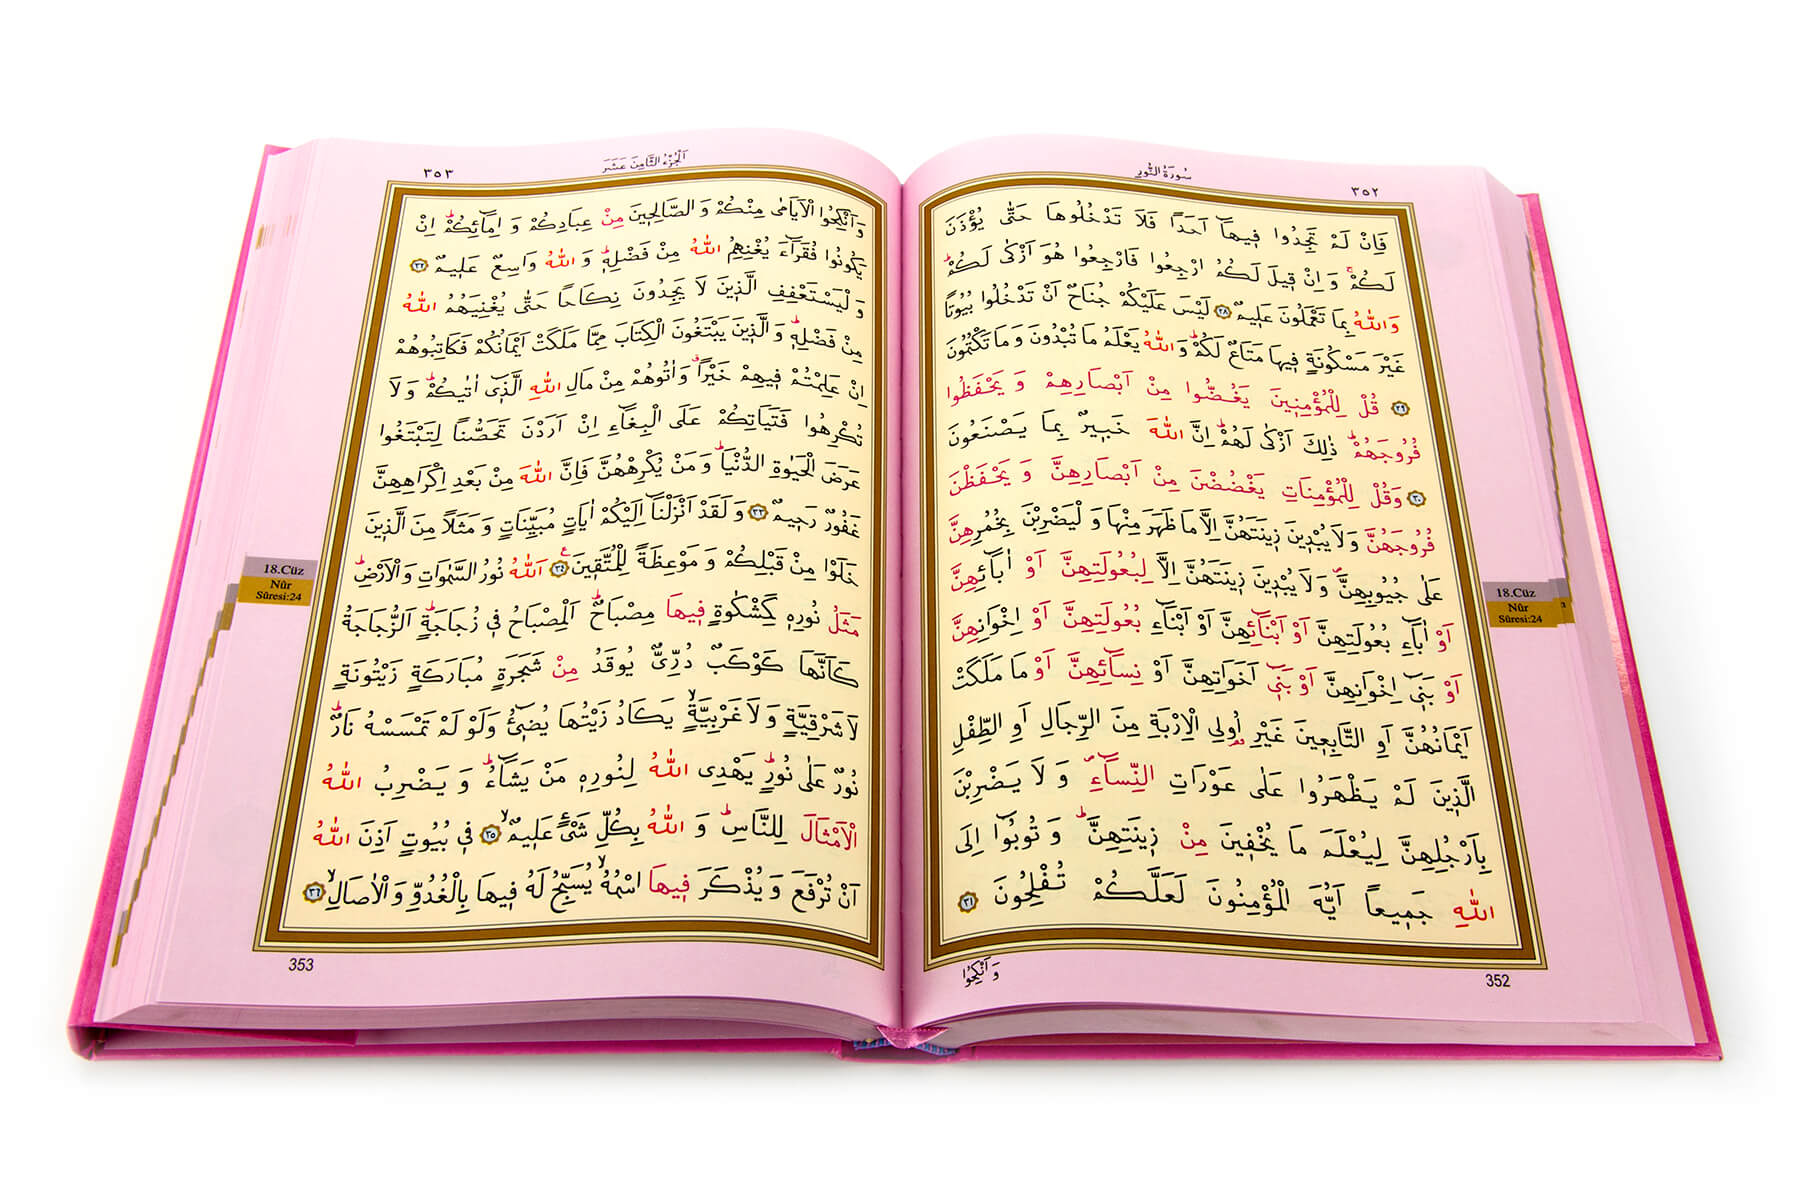 سُورَةُ النُّورِ
٣٥٢
فَاِنْ لَمْ تَجِدُوا ف۪يهَٓا اَحَدًا فَلَا تَدْخُلُوهَا حَتّٰى يُؤْذَنَ
لَكُمْۚ وَاِنْ ق۪يلَ لَكُمُ ارْجِعُوا فَارْجِعُوا هُوَ اَزْكٰى لَكُمْۜ
وَاللّٰهُ بِمَا تَعْمَلُونَ عَل۪يمٌ ﴿٢٨﴾ لَيْسَ عَلَيْكُمْ جُنَاحٌ اَنْ تَدْخُلُوا بُيُوتًا
غَيْرَ مَسْكُونَةٍ ف۪يهَا مَتَاعٌ لَكُمْۜ وَاللّٰهُ يَعْلَمُ مَا تُبْدُونَ وَمَا تَكْتُمُونَ
﴿٢٩﴾ قُلْ لِلْمُؤْمِن۪ينَ يَغُضُّوا مِنْ اَبْصَارِهِمْ وَيَحْفَظُوا
فُرُوجَهُمْۜ ذٰلِكَ اَزْكٰى لَهُمْۜ اِنَّ اللّٰهَ خَب۪يرٌ بِمَا يَصْنَعُونَ
﴿٣٠﴾ وَقُلْ لِلْمُؤْمِنَاتِ يَغْضُضْنَ مِنْ اَبْصَارِهِنَّ وَيَحْفَظْنَ
فُرُوجَهُنَّ وَلَا يُبْد۪ينَ ز۪ينَتَهُنَّ اِلَّا مَا ظَهَرَ مِنْهَا وَلْيَضْرِبْنَ بِخُمُرِهِنَّ
عَلٰى جُيُوبِهِنَّۖ وَلَا يُبْد۪ينَ ز۪ينَتَهُنَّ اِلَّا لِبُعُولَتِهِنَّ اَوْ اٰبَٓائِهِنَّ
اَوْ اٰبَٓاءِ بُعُولَتِهِنَّ اَوْ اَبْنَٓائِهِنَّ اَوْ اَبْنَٓاءِ بُعُولَتِهِنَّ اَوْ اِخْوَانِهِنَّ
اَوْ بَن۪ٓي اِخْوَانِهِنَّ اَوْ بَن۪ٓي اَخَوَاتِهِنَّ اَوْ نِسَٓائِهِنَّ اَوْ مَا مَلَكَتْ
اَيْمَانُهُنَّ اَوِ التَّابِع۪ينَ غَيْرِ اُو۬لِي الْاِرْبَةِ مِنَ الرِّجَالِ اَوِ الطِّفْلِ
الَّذ۪ينَ لَمْ يَظْهَرُوا عَلٰى عَوْرَاتِ النِّسَٓاءِۖ وَلَا يَضْرِبْنَ
بِاَرْجُلِهِنَّ لِيُعْلَمَ مَا يُخْف۪ينَ مِنْ ز۪ينَتِهِنَّۜ وَتُوبُٓوا اِلَى
اللّٰهِ جَم۪يعًا اَيُّهَ الْمُؤْمِنُونَ لَعَلَّكُمْ تُفْلِحُونَ ﴿٣١﴾
وَاَنْكِحُوا
352
18.Cüz
Nûr
Sûresi:24
اَلْجُزْءُ الثَّامِنَ عَشَرَ
٣٥٣
وَاَنْكِحُوا الْاَيَامٰى مِنْكُمْ وَالصَّالِح۪ينَ مِنْ عِبَادِكُمْ وَاِمَٓائِكُمْۜ اِنْ
يَكُونُوا فُقَرَٓاءَ يُغْنِهِمُ اللّٰهُ مِنْ فَضْلِه۪ۜ وَاللّٰهُ وَاسِعٌ عَل۪يمٌ ﴿٣٢﴾
وَلْيَسْتَعْفِفِ الَّذ۪ينَ لَا يَجِدُونَ نِكَاحًا حَتّٰى يُغْنِيَهُمُ اللّٰهُ
مِنْ فَضْلِه۪ۜ وَالَّذ۪ينَ يَبْتَغُونَ الْكِتَابَ مِمَّا مَلَكَتْ اَيْمَانُكُمْ فَكَاتِبُوهُمْ
اِنْ عَلِمْتُمْ ف۪يهِمْ خَيْرًاۗ وَاٰتُوهُمْ مِنْ مَالِ اللّٰهِ الَّذ۪ٓي اٰتٰيكُمْۜ وَلَا
تُكْرِهُوا فَتَيَاتِكُمْ عَلَى الْبِغَٓاءِ اِنْ اَرَدْنَ تَحَصُّنًا لِتَبْتَغُوا
عَرَضَ الْحَيٰوةِ الدُّنْيَاۜ وَمَنْ يُكْرِهْهُنَّ فَاِنَّ اللّٰهَ مِنْ بَعْدِ اِكْرَاهِهِنَّ
غَفُورٌ رَح۪يمٌ ﴿٣٣﴾ وَلَقَدْ اَنْزَلْنَٓا اِلَيْكُمْ اٰيَاتٍ مُبَيِّنَاتٍ وَمَثَلًا مِنَ الَّذ۪ينَ
خَلَوْا مِنْ قَبْلِكُمْ وَمَوْعِظَةً لِلْمُتَّق۪ينَ ﴿٣٤﴾ اَللّٰهُ نُورُ السَّمٰوَاتِ وَالْاَرْضِۜ
مَثَلُ نُورِه۪ كَمِشْكٰوةٍ ف۪يهَا مِصْبَاحٌۜ اَلْمِصْبَاحُ ف۪ي زُجَاجَةٍۜ اَلزُّجَاجَةُ
كَاَنَّهَا كَوْكَبٌ دُرِّيٌّ يُوقَدُ مِنْ شَجَرَةٍ مُبَارَكَةٍ زَيْتُونَةٍ
لَا شَرْقِيَّةٍ وَلَا غَرْبِيَّةٍۙ يَكَادُ زَيْتُهَا يُض۪ٓيءُ وَلَوْ لَمْ تَمْسَسْهُ نَارٌۜ
نُورٌ عَلٰى نُورٍۜ يَهْدِي اللّٰهُ لِنُورِه۪ مَنْ يَشَٓاءُۜ وَيَضْرِبُ اللّٰهُ
الْاَمْثَالَ لِلنَّاسِۜ وَاللّٰهُ بِكُلِّ شَيْءٍ عَل۪يمٌۙ ﴿٣٥﴾ ف۪ي بُيُوتٍ اَذِنَ اللّٰهُ
اَنْ تُرْفَعَ وَيُذْكَرَ ف۪يهَا اسْمُهُۙ يُسَبِّحُ لَهُ ف۪يهَا بِالْغُدُوِّ وَالْاٰصَالِۙ ﴿٣٦﴾
353
18.Cüz
Nûr
Sûresi:24